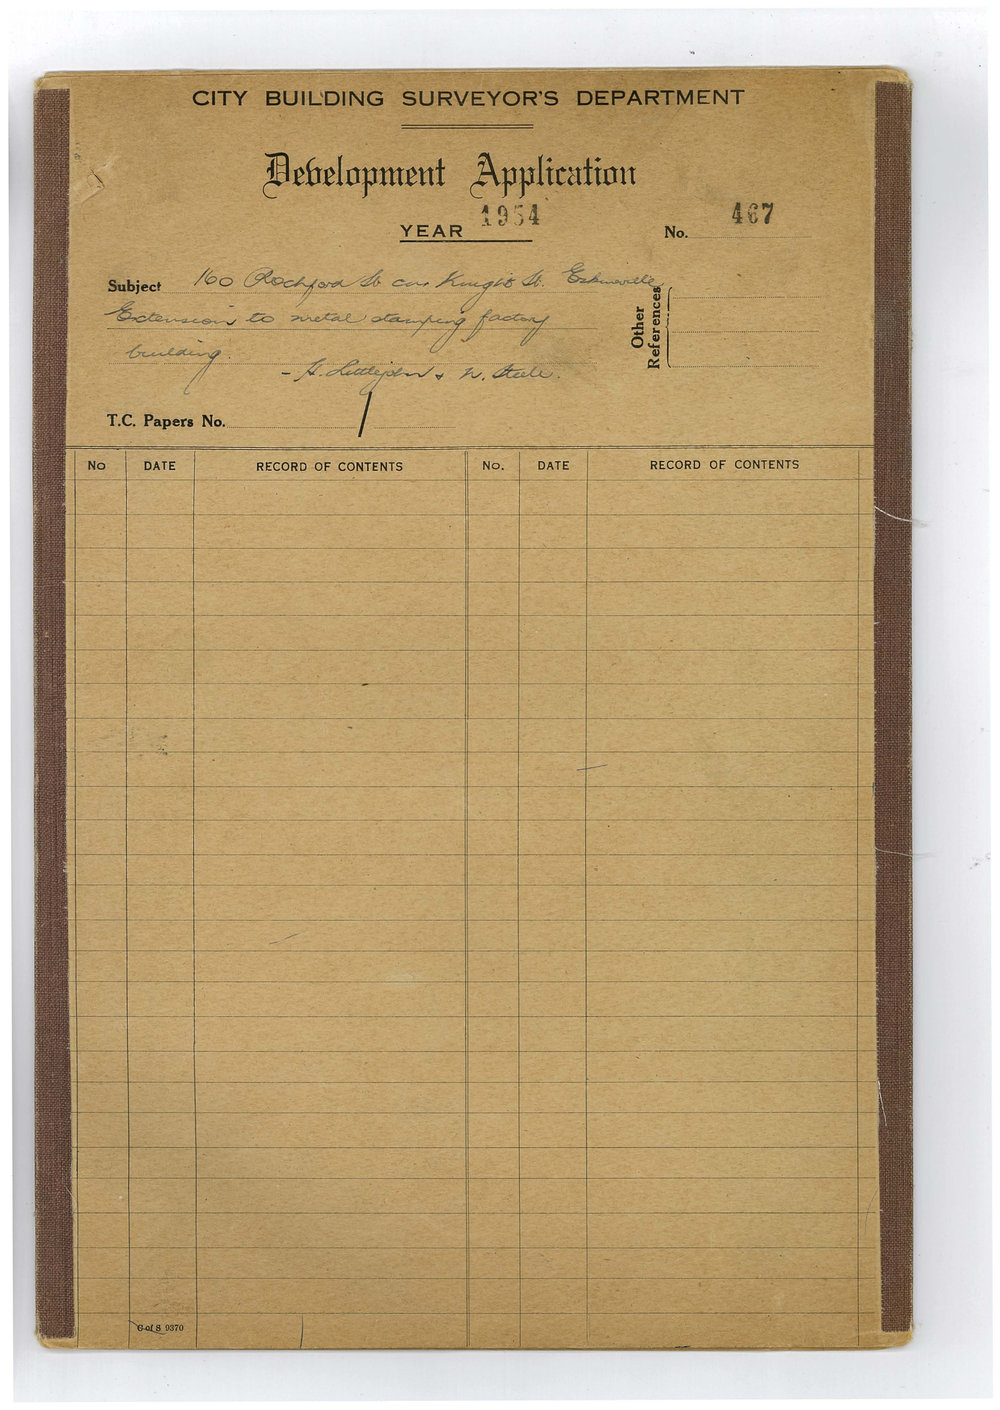 CITY BUILDING SURVEYOR'S DEPARTMENT
Development Application
YEAR 1954
No. 467
Subject 160 Rochford St cnr Knight St. Erskineville
Extension to metal stamping factory
building.
- A. Littlejohn & W. Steele.
Other References
T.C. Papers No.
No DATE RECORD OF CONTENTS No. DATE RECORD OF CONTENTS
C of S 9370